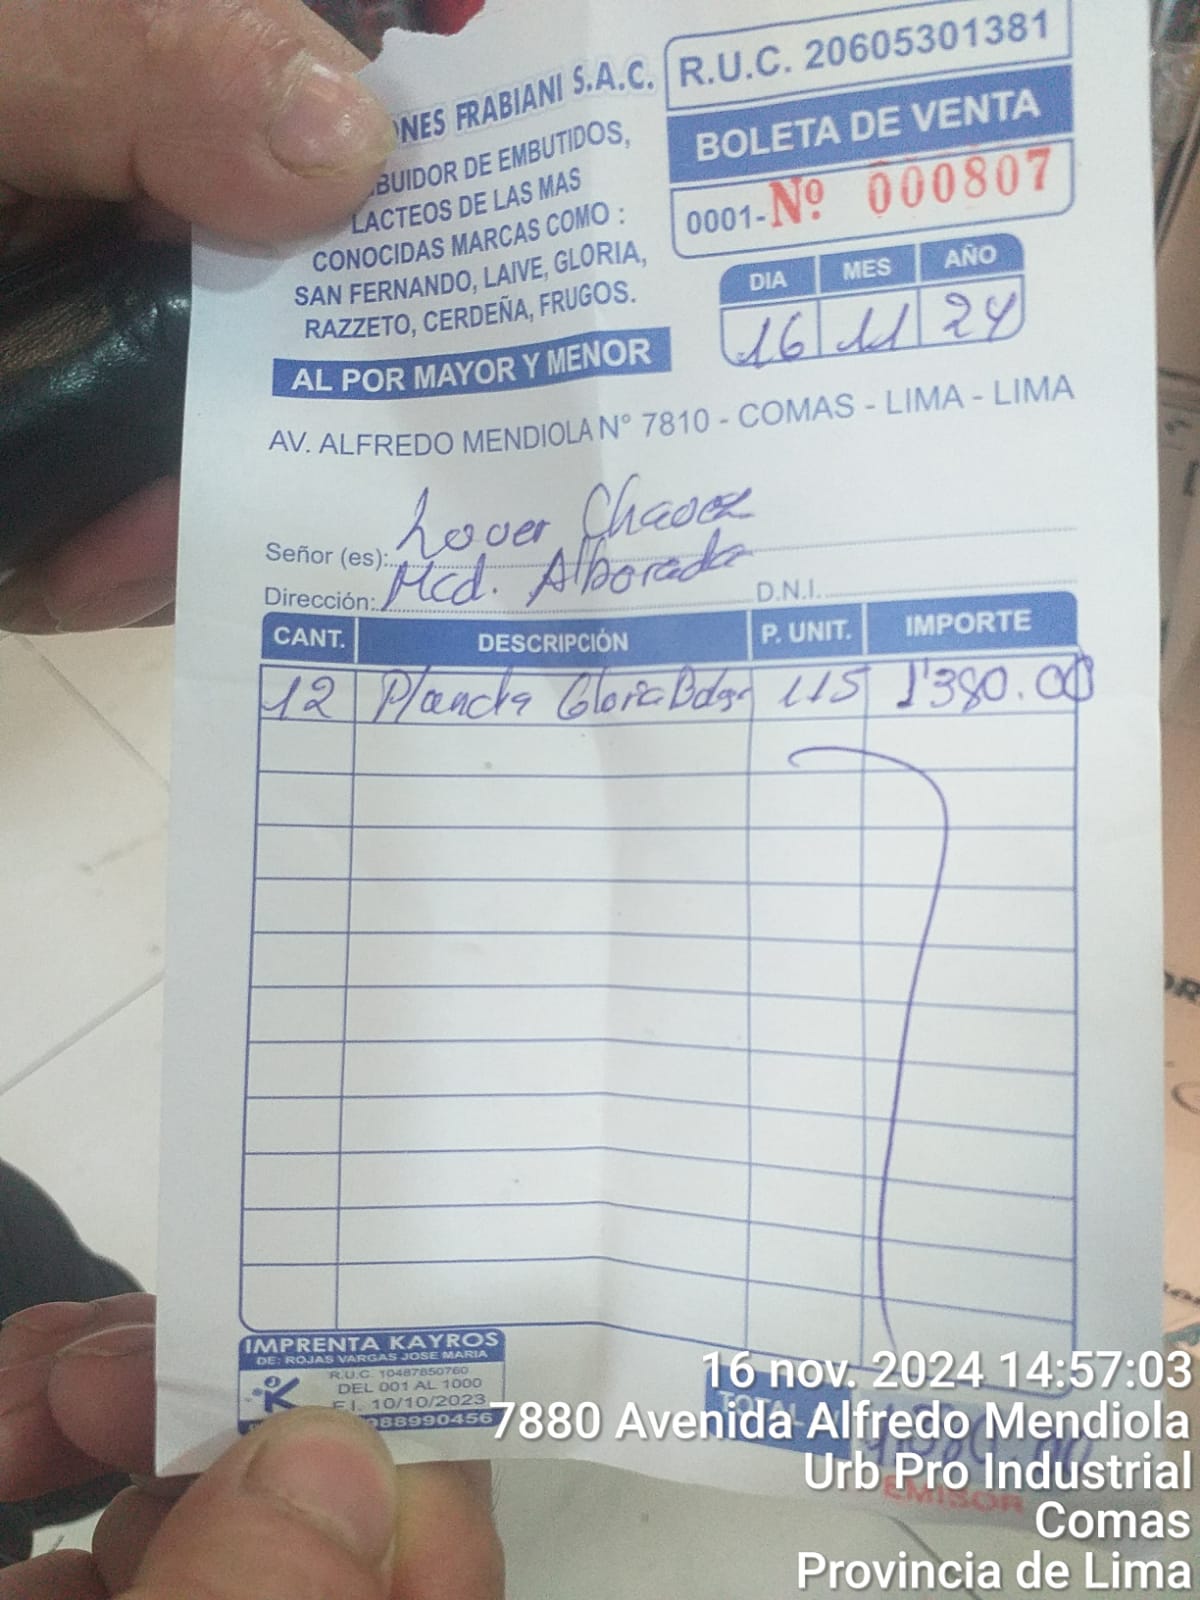 NES FRABIANI S.A.C.
BUIDOR DE EMBUTIDOS,
LACTEOS DE LAS MAS
CONOCIDAS MARCAS COMO :
SAN FERNANDO, LAIVE, GLORIA,
RAZZETO, CERDEÑA, FRUGOS.
AL POR MAYOR Y MENOR
R.U.C. 20605301381
BOLETA DE VENTA
0001-Nº 000807
DIA MES AÑO
16 11 24
AV. ALFREDO MENDIOLA N° 7810 - COMAS - LIMA - LIMA
Señor (es): Lover Chavez
Dirección: Mcd. Alborada D.N.I.
CANT. DESCRIPCIÓN P. UNIT. IMPORTE
12 Plancha Gloria 115 1'380.00
IMPRENTA KAYROS
DE: ROJAS VARGAS JOSE MARIA
R.U.C. 10487850760
DEL 001 AL 1000
F.I. 10/10/2023
988990456
TOTAL 1380.00
EMISOR
16 nov. 2024 14:57:03
7880 Avenida Alfredo Mendiola
Urb Pro Industrial
Comas
Provincia de Lima